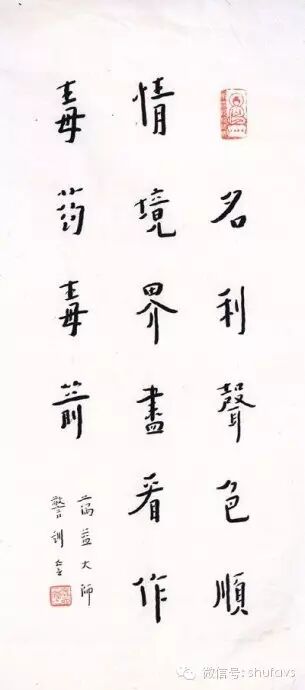 名利聲色順
情境界盡看作
毒葯毒箭
蕅益大師
警訓
微信号: shufavs